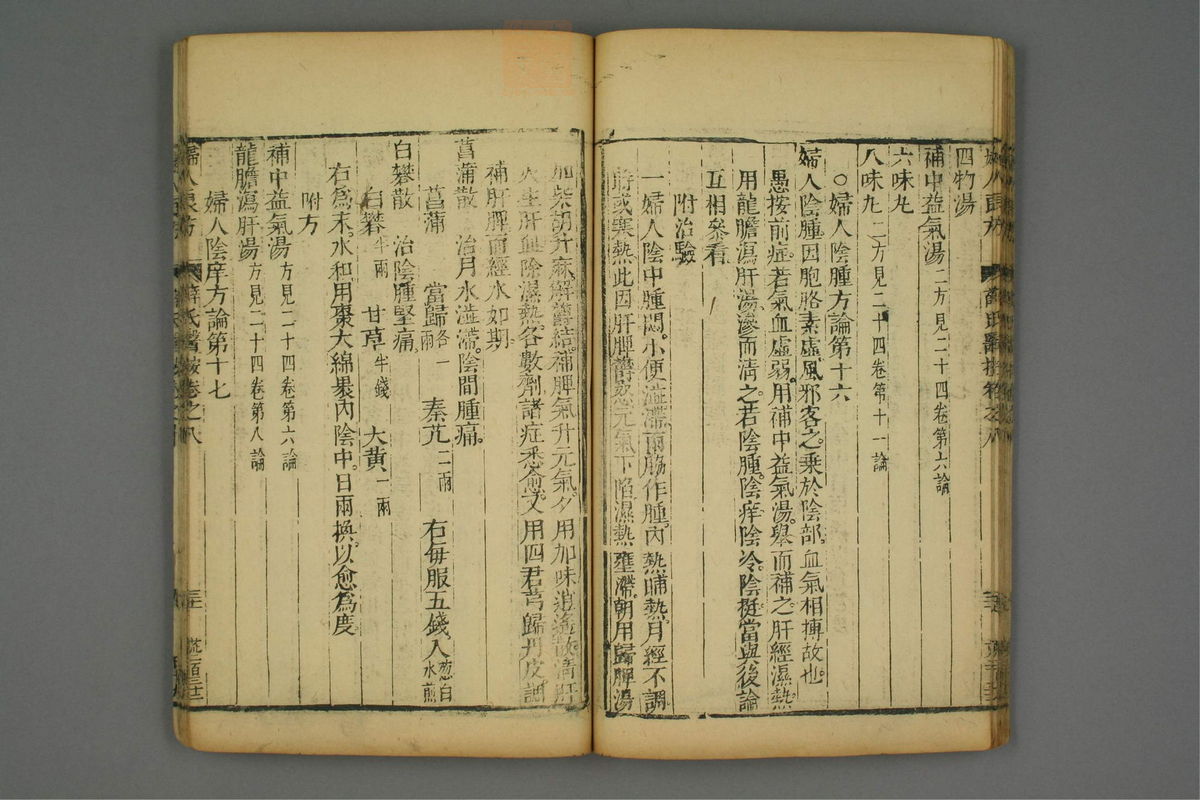 四物湯
補中益氣湯二方見二十四卷第六論
六味丸
八味丸二方見二十四卷第十一論
○婦人陰腫方論第十六
婦人陰腫因胞胳素虛風邪客之乘於陰部血氣相搏故也
愚按前症若氣血虛弱用補中益氣湯舉而補之肝經濕熱
用龍膽瀉肝湯滲而清之若陰腫陰痒陰冷陰挺當與後論
互相參看
附治驗
一婦人陰中腫悶小便澁滯兩脇作腫內熱晡熱月經不調
時或寒熱此因肝脾鬱怒元氣下陷濕熱壅滯朝用歸脾湯
加柴胡升麻解鬱結補脾氣升元氣夕用加味逍遙散清肝
火生肝血除濕熱各數劑諸症悉愈又用四君芎歸丹皮調
補肝脾而經水如期
菖蒲散 治月水澁滯陰間腫痛
菖蒲 當歸各一兩 秦艽二兩 右每服五錢入葱白水煎
白礬散 治陰腫堅痛
白礬半兩 甘草半錢 大黃一兩
右爲末水和用棗大綿裹內陰中日兩換以愈爲度
附方
補中益氣湯方見二十四卷第六論
龍膽瀉肝湯方見二十四卷第八論
婦人陰痒方論第十七
婦人良方 薛氏醫按卷之八